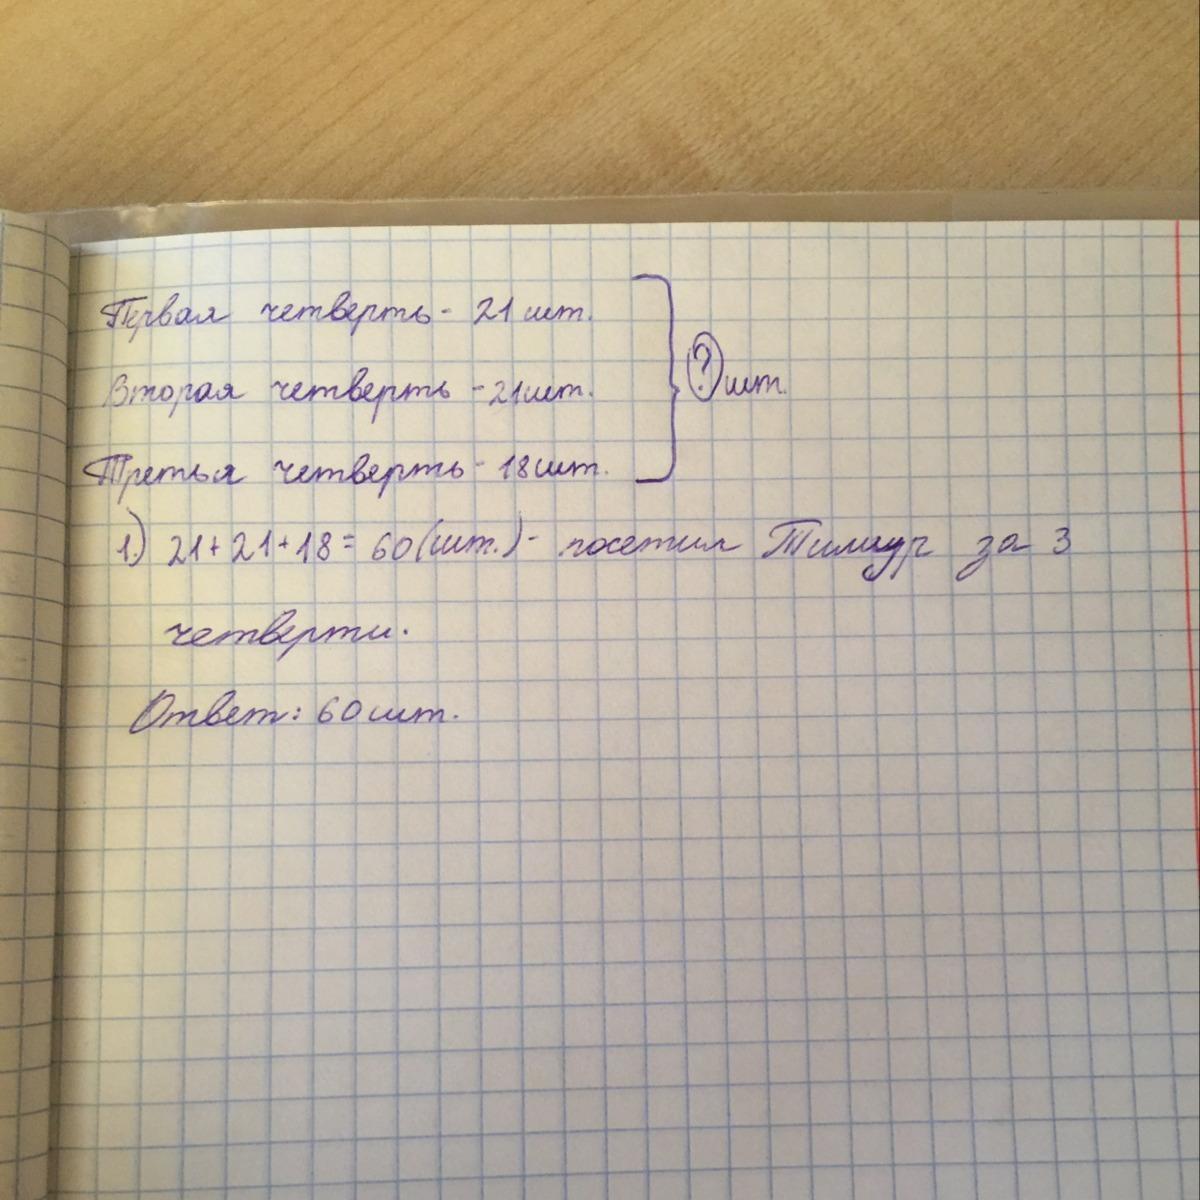 Первая четверть - 21 шт.
Вторая четверть - 21 шт.
Третья четверть - 18 шт.
? шт.
1.) 21 + 21 + 18 = 60 (шт.) - посетил Тимур за 3
четверти.
Ответ: 60 шт.